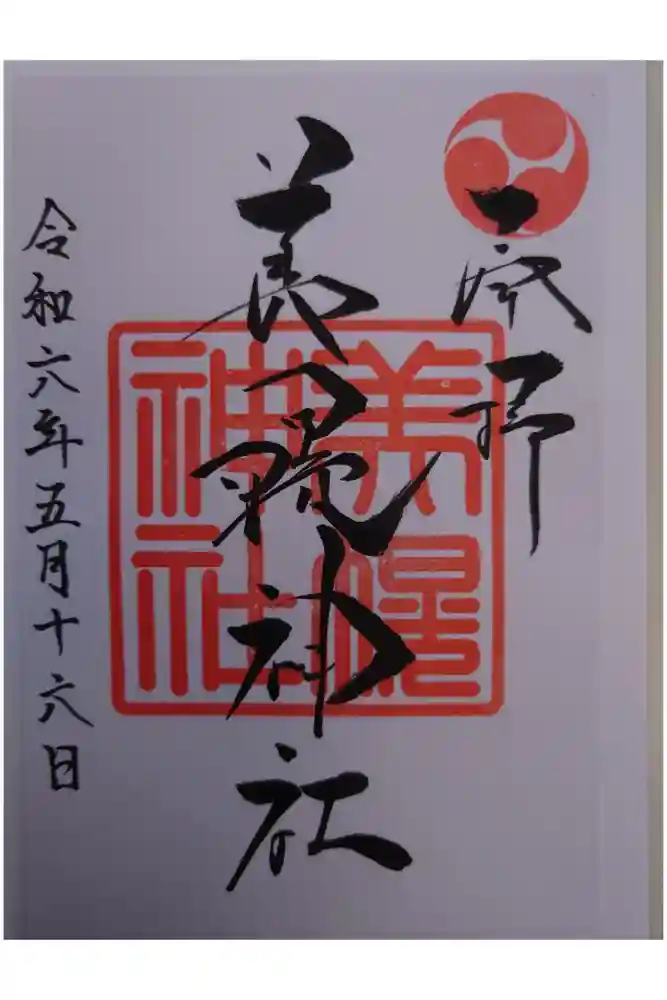 奉拝
美幌神社
美幌
神社
令和六年五月十六日